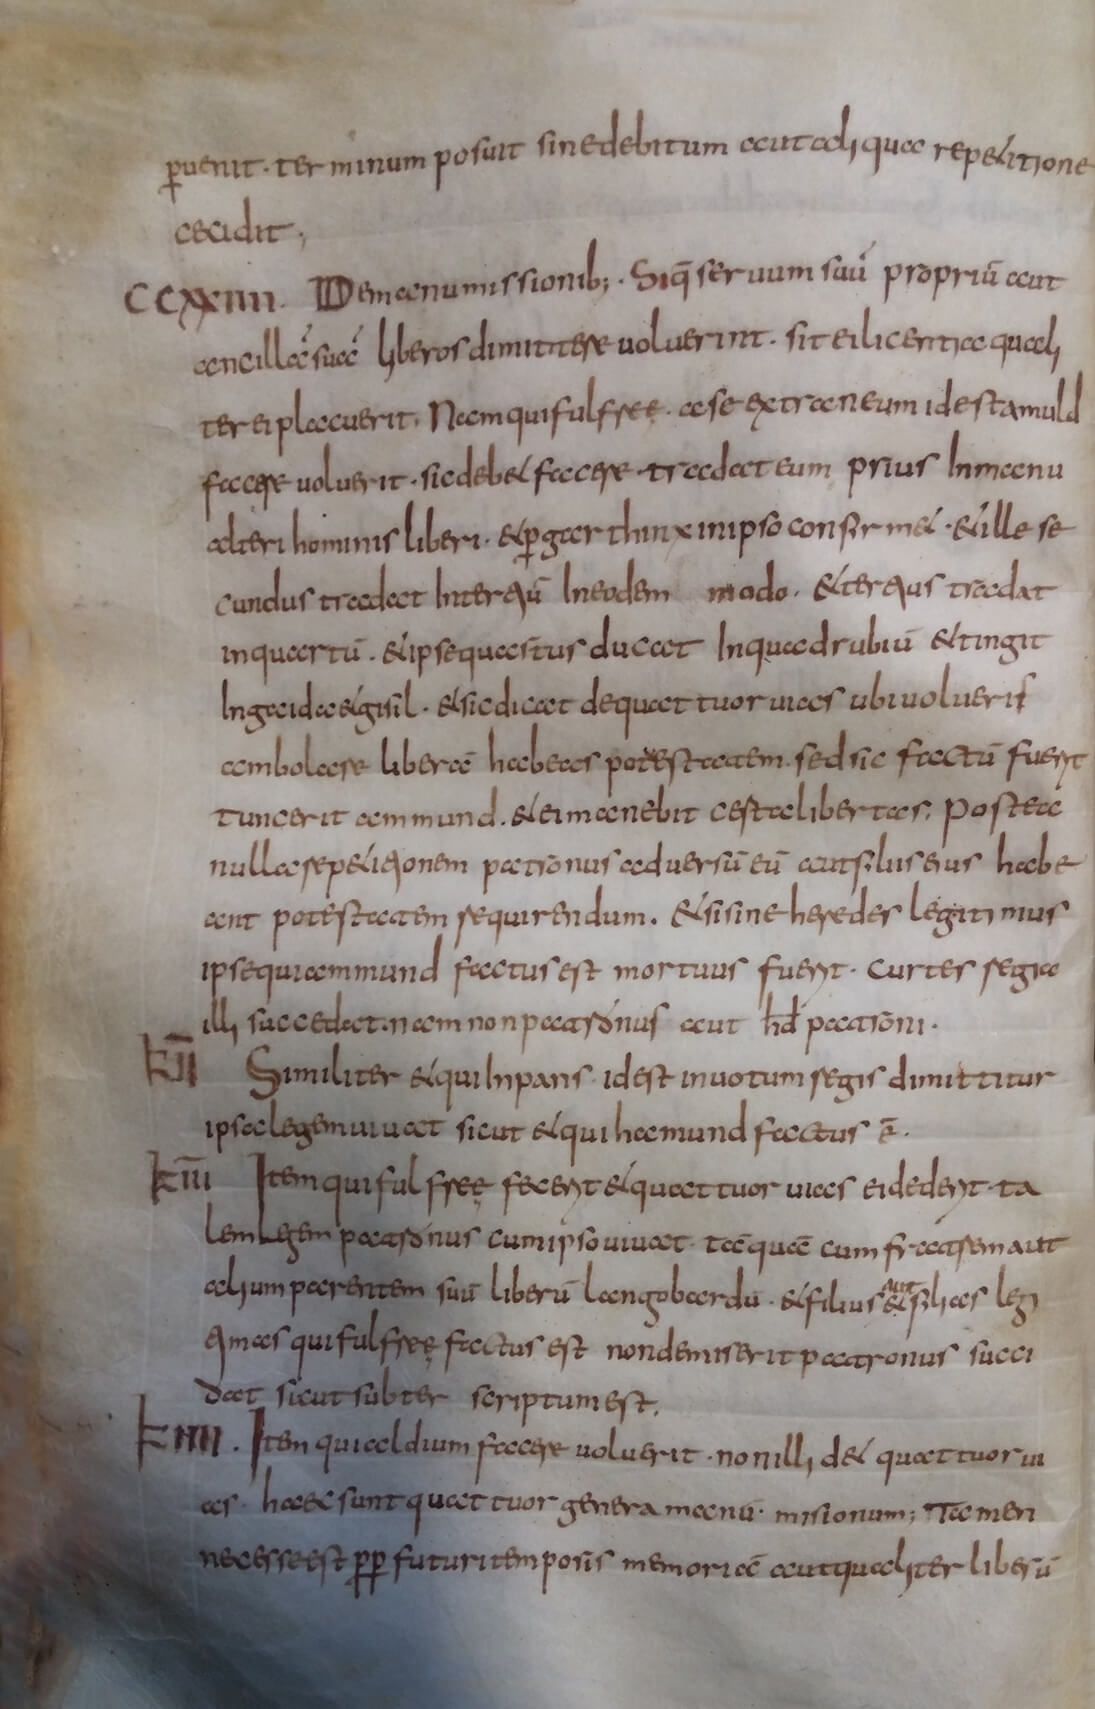 ꝑuenit · terminum posuit sinedebitum aut aliqua repetitione
cecidit ;
CCXXIIII. Demanumissionib; · Siq̄ seruum suū propriū aut
ancillā suā liberos dimittere uoluerint · sit eilicentia quali
ter eiplacuerit. Namquifulfree · ase extraneum idestamuld
facere uoluerit · sicdebet facere · tradat eum prius Inmanu
alteri hominis liberi · &ꝑgarthinx inipso confirmet · &ille se
cundus tradat Intertiū Ineodem modo · &tertius tradat
inquartū · &ipsequartus ducat Inquadrubiū &tingit
Ingaida&gisil · &sicdicat dequattuoruias ubiuolueris
ambolare liberā habeas potestatem · sedsic factū fuerit
tuncerit ammund · &eimanebit certalibertas; Postea
nullarepetitionem patronus aduersū eū autfilius eius habe
ant potestatem requirendum. &sisine heredes legitimus
ipsequiammund factus est mortuus fuerit · curtes regia
illi succedat · nam non patronus aut hd̄ patroni ·
k̄ II Similiter &qui Inpans · idest inuotum regis dimittitur
ipsa legem uiuat sicut &qui hamund factus ē ·
k̄ III Item qui fulfree fecerit &quattuor uias eidederit · ta
lem Legem patronus cumipsouiuat · tāquā cum fratrem aut
alium parentem suū liberū langobardū · &filius &aut filias legi
timas qui fulfree factus est nondemiserit patronus succi
dat sicut subter scriptum est.
k̄ IIII. Item qui aldium facere uoluerit · nonilli det quattuor ui
as · haec sunt quattuor genera manū misionum; Tamen
necesseest ꝓꝑ futuritemporis memoriā autqualiter liberū